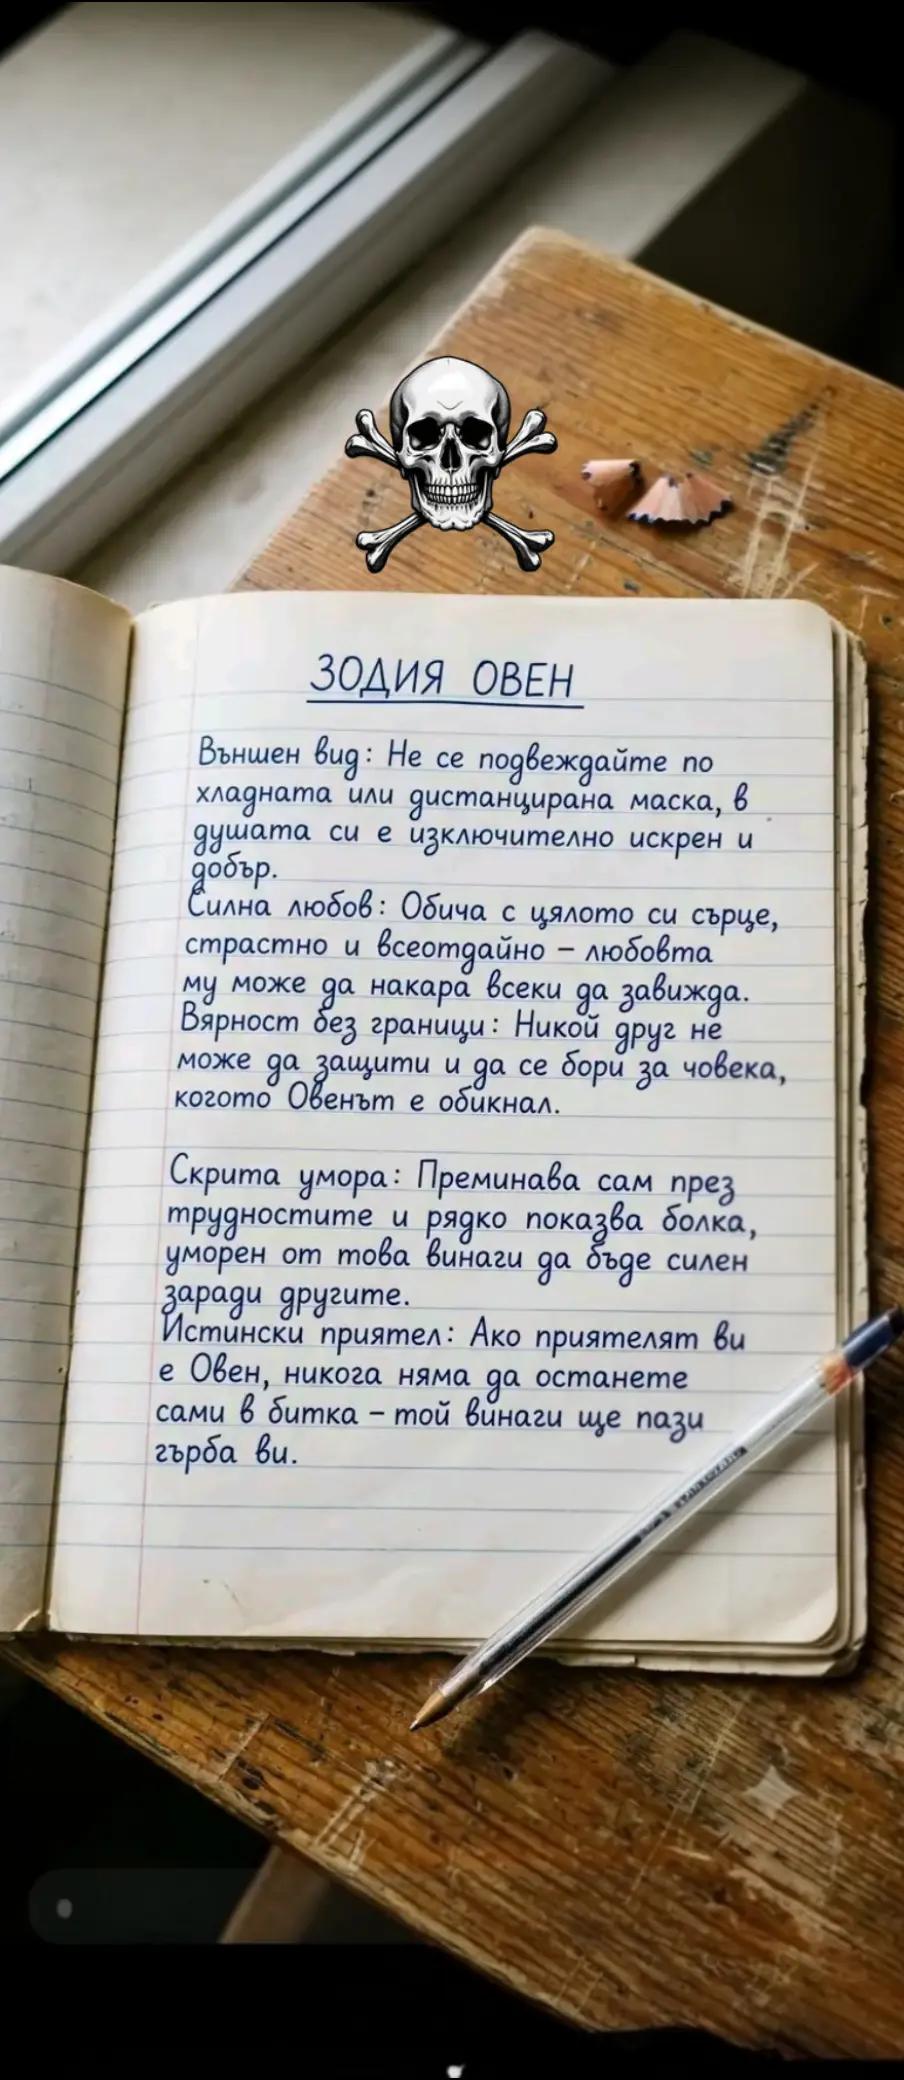 ЗОДИЯ ОВЕН
Външен вид: Не се подвеждайте по
хладната или дистанцирана маска, в
душата си е изключително искрен и
добър.
Силна любов: Обича с цялото си сърце,
страстно и всеотдайно – любовта
му може да накара всеки да завижда.
Вярност без граници: Никой друг не
може да защити и да се бори за човека,
когото Овенът е обикнал.
Скрита умора: Преминава сам през
трудностите и рядко показва болка,
уморен от това винаги да бъде силен
заради другите.
Истински приятел: Ако приятелят ви
е Овен, никога няма да останете
сами в битка – той винаги ще пази
гърба ви.